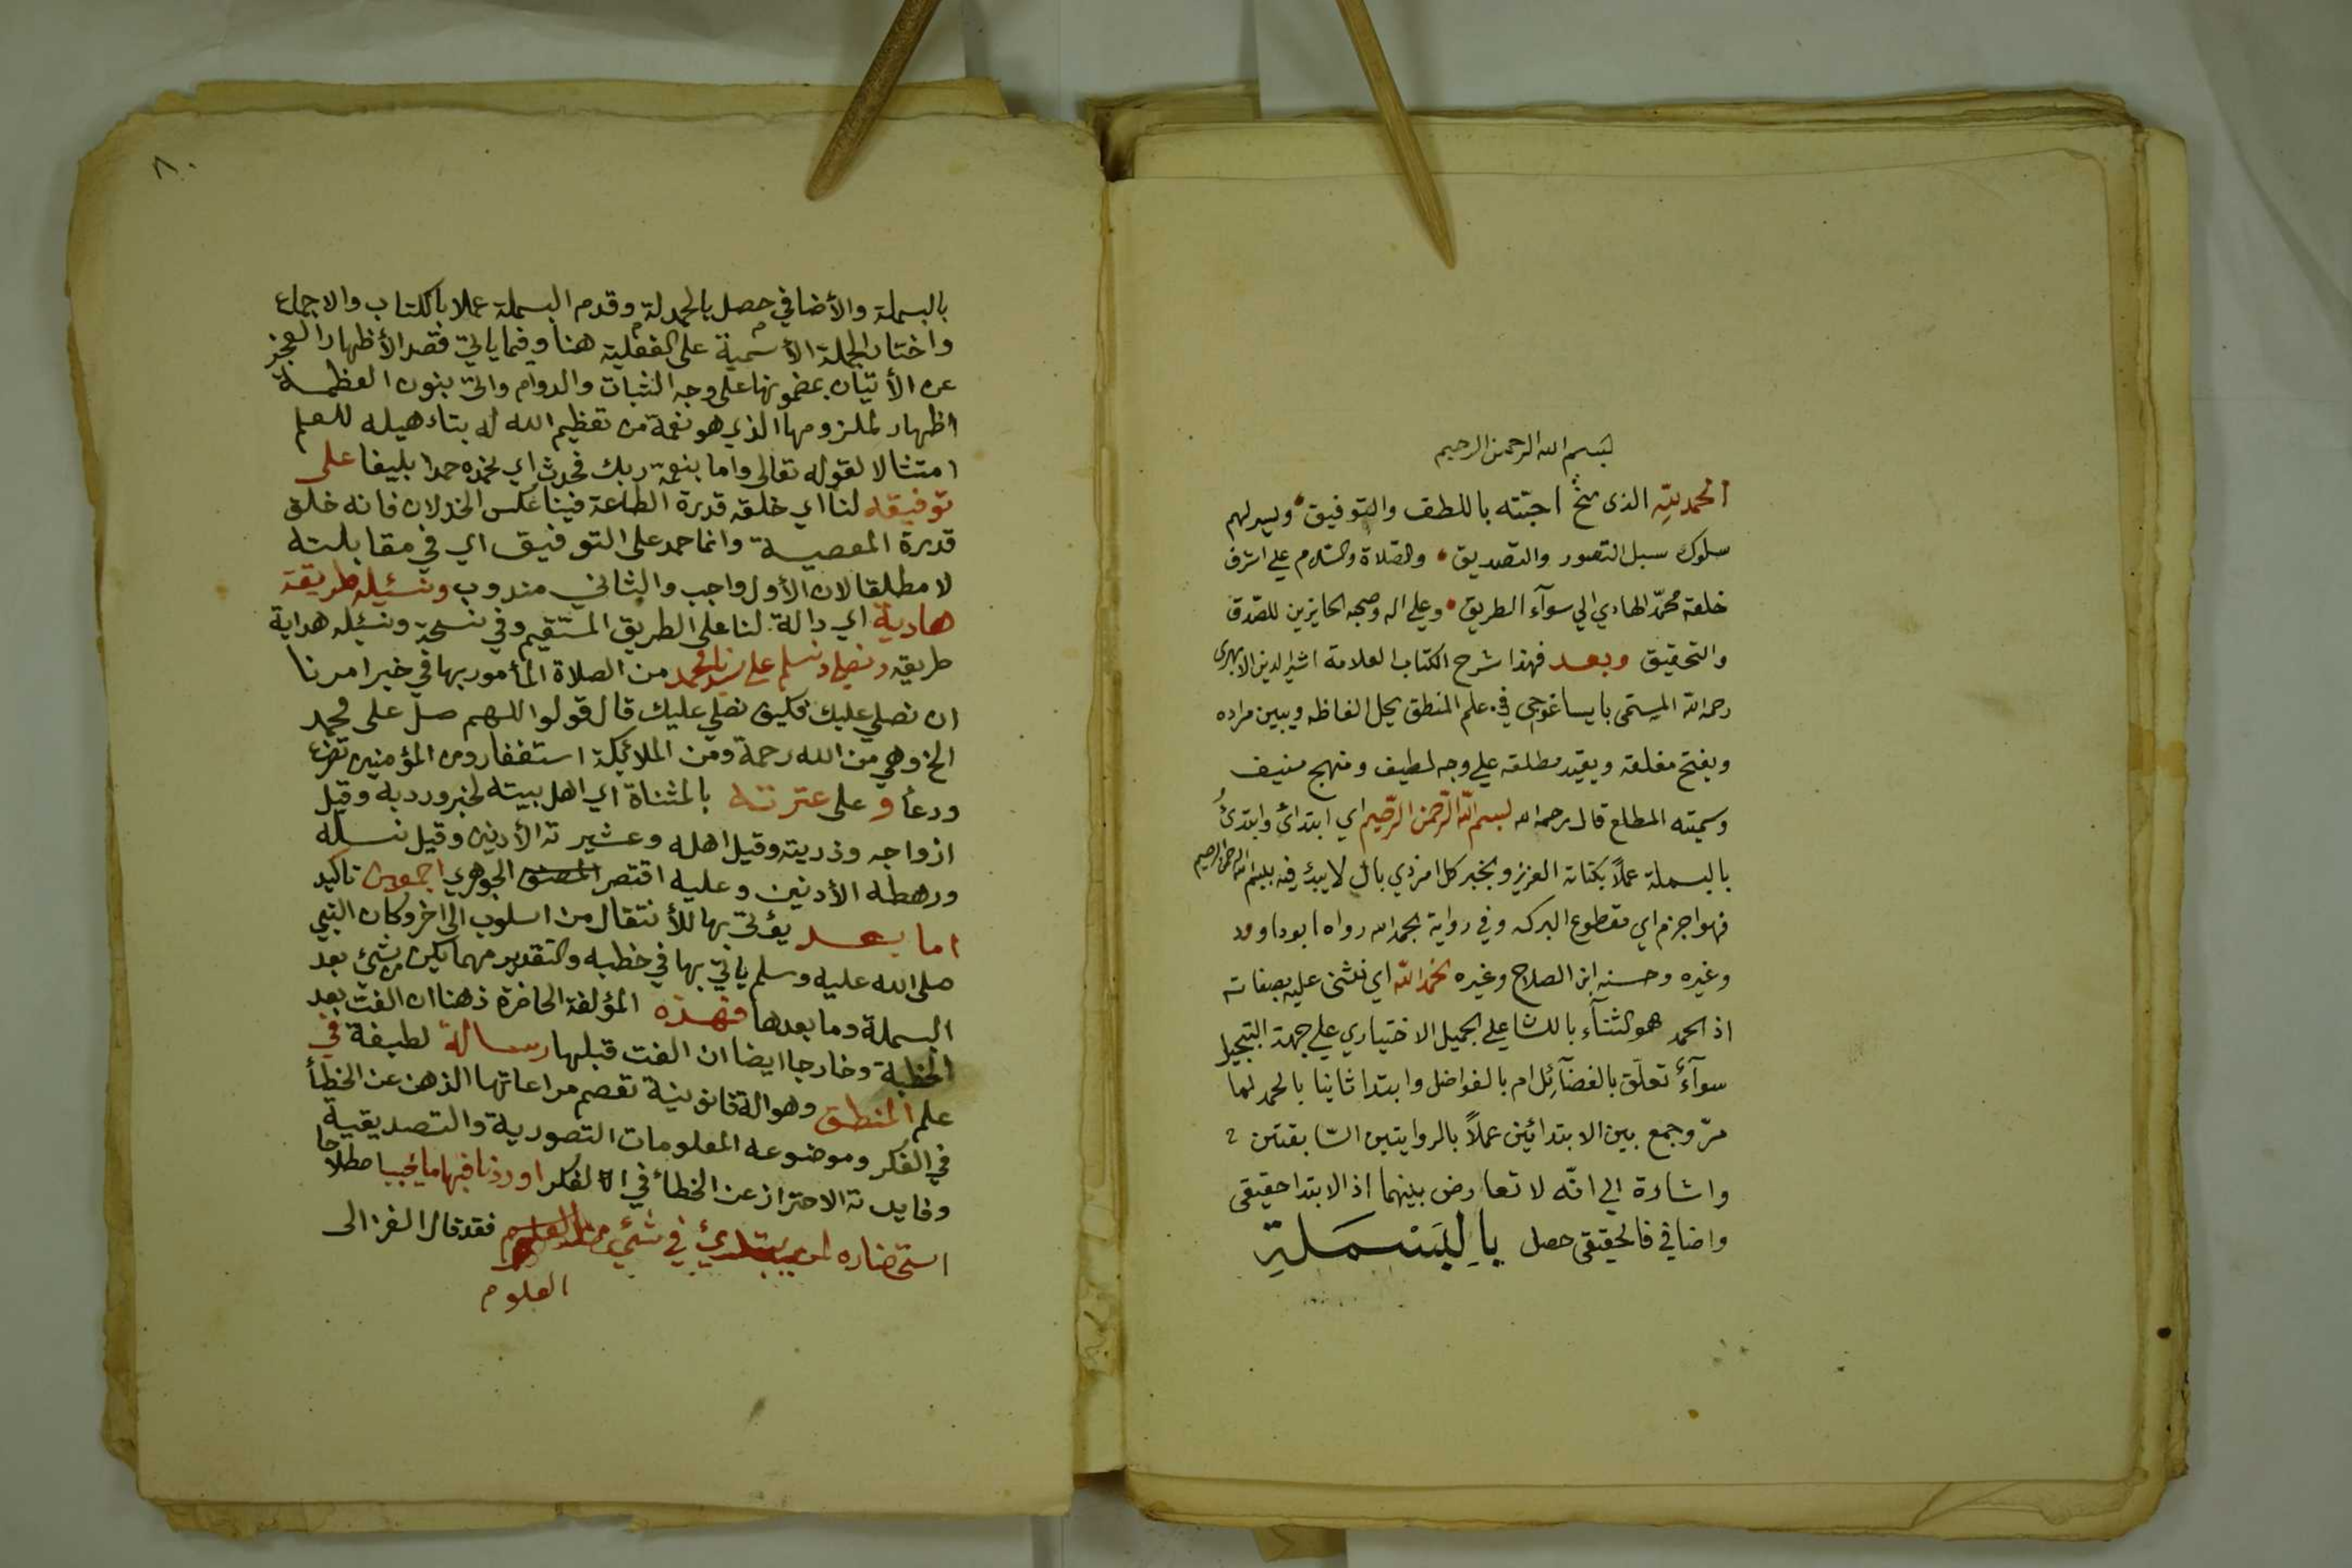 بسم الله الرحمن الرحيم
الحمد لله الذى منح احبته باللطف والتوفيق ويسر لهم
سلوك سبل التصور والتصديق والصلاة والسلام على اشرف
خلقه محمد الهادي الي سوآء الطريق وعلى اله وصحبه الحايزين للصدق
والتحقيق وبعد فهذا شرح الكتاب العلامة اثير الدين الابهرى
رحمه الله المسمى بايساغوجى في علم المنطق يحل الفاظه ويبين مراده
ويفتح مغلقه ويقيد مطلقه على وجه لطيف ومنهج منيف
وسميته المطلع قال رحمه الله بسم الله الرحمن الرحيم اي ابتدائ وابتدئ
بالبسملة عملاً بكتابه العزيز وبخبر كل امر ذي بال لا يبدؤ فيه ببسم الله الرحمن الرحيم
فهو اجزم اي مقطوع البركه وفي رواية بالحمد لله رواه ابو داود
وغيره وحسنه ابن الصلاح وغيره نحمد الله اي نثنى عليه بصفاته
اذ الحمد هو الثنآء باللسان على الجميل الاختياري على جهة التبجيل
سوآءٌ تعلق بالفضآئل ام بالفواضل وابتدا ثانيا بالحمد لما
مرّ وجمع بين الابتدائين عملاً بالروايتين السّابقتين
واشارة الي انّه لا تعارض بينهما اذ الابتدا حقيقى
واضافي فالحقيقى حصل بِالبَسْمَلةِ
٨٠
بالبسملة والأضافي حصل بالحمدلة وقدم البسملة عملا بالكتاب والاجماع
واختار الجملة الأسمية على الفعلية هنا وفيما ياتي قصد الأظهار العجز
عن الأتيان بمضمونها على وجه الثبات والدوام واتى بنون العظمة
اظهار لملزومها الذي هو نعمة من تعظيم الله له بتاهيله للعلم
امتثالا لقوله تعالى واما بنعمة ربك فحدث اي نحمده حمدا بليغا على
توفيقه لنا اي خلقه قدرة الطاعة فينا عكس الخذلان فانه خلق
قدرة المعصية وانما حمد على التوفيق اي في مقابلته
لا مطلقا لان الأول واجب والثاني مندوب ونسئله طريقة
هادية اي دالة لنا على الطريق المستقيم وفي نسخة ونسئله هداية
طريقه ونصلي ونسلم على سيدنا محمد من الصلاة المأمور بها في خبر امرنا
ان نصلي عليك فكيف نصلي عليك قال قولوا اللهم صل على محمد
الخ وهي من الله رحمة ومن الملائكة استغفار ومن المؤمنين تضرع
ودعاً و على عترته بالمثناة اي اهل بيته لخبر ورد به وقيل
ازواجه وذريته وقيل اهله وعشيرته الأدنين وقيل نسله
ورهطه الأدنين وعليه اقتصر المصنف الجوهري اجمعين تاكيد
اما بعد يؤتى بها للأنتقال من اسلوب الى اخر وكان النبي
صلى الله عليه وسلم ياتي بها في خطبه والتقدير مهما يكن من شيئ بعد
البسملة وما بعدها فهذه المؤلفة الحاضرة ذهنا ان الفت بعد
الخطبة وخارجا ايضا ان الفت قبلها رسالة لطيفة في
علم المنطق وهو الة قانونية تعصم مراعاتها الذهن عن الخطأ
في الفكر وموضوعه المعلومات التصورية والتصديقية
وفايدته الاحتراز عن الخطأ في الفكر اوردنا فيها ما يجب اصطلاحا
استحضاره لمن يبتدئ في شئ من العلوم فقد قال الغزالى
العلوم